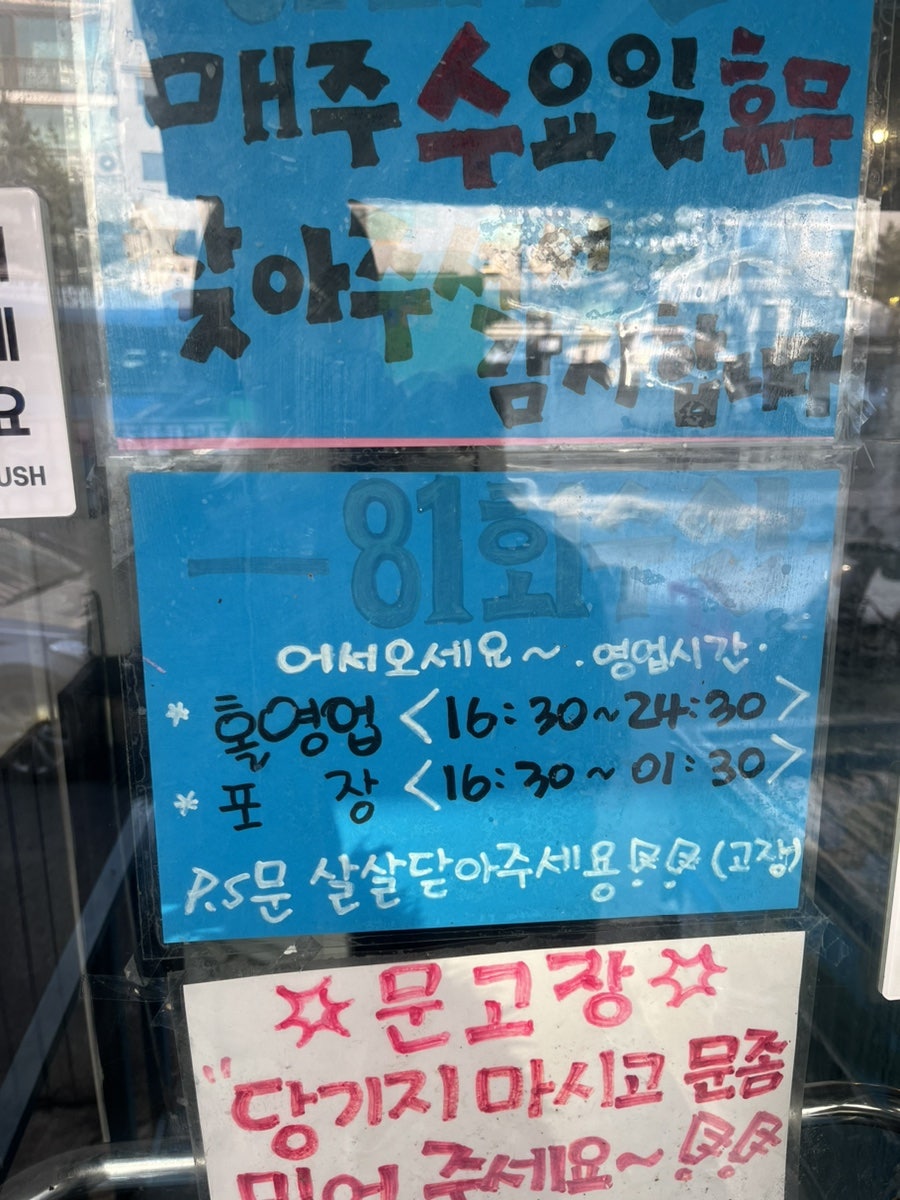 매주 수요일 휴무
찾아주셔서
감사합니다
요
USH
81회
어서오세요~. 영업시간.
* 홀영업 <16:30~24:30>
* 포 장 <16:30~01:30>
P.S문 살살닫아주세용 (고쟁)
문고장
"당기지 마시고 문좀
밀어 주세요~